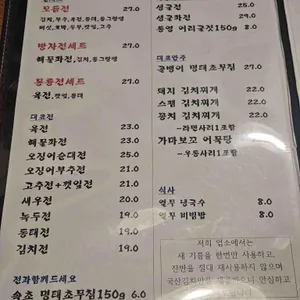 모듬전 27.0
김치,부추,육전,동태,동그랑땡
버섯,호박,두부,깻잎,고추
방자전세트 27.0
해물파전,김치,동그랑땡
통통전세트 27.0
육전,깻잎,동태
대표전
육전 23.0
해물파전 23.0
오징어순대전 25.0
오징어부추전 21.0
고추전+깻잎전 21.0
새우전 20.0
녹두전 19.0
동태전 19.0
김치전 19.0
전과함께드세요
속초 명태초무침150g 6.0
굴전 25.0
생굴파전 29.0
통영 어리굴젓150g 8.0
대표안주
골뱅이 명태초무침 27.0
돼지 김치찌개 22.0
스팸 김치찌개 22.0
꽁치 김치찌개 22.0
-라면사리1포함
가마보꼬 어묵탕 22.0
-우동사리1포함
식사
열무 냉국수 8.0
열무 비빔밥 8.0
저희 업소에서는
새 기름을 한번만 사용하고,
잔반을 절대 재사용하지 않으며
국산김치만을